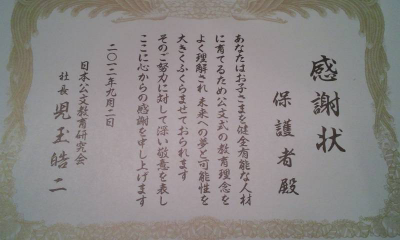 感謝状
保護者殿
あなたはお子さまを健全有能な人材
に育てるため公文式の教育理念を
よく理解され 未来への夢と可能性を
大きくふくらませておられます
そのご努力に対して深い敬意を表し
ここに心からの感謝を申し上げます
二〇一二年九月二日
日本公文教育研究会
社長 児玉皓二